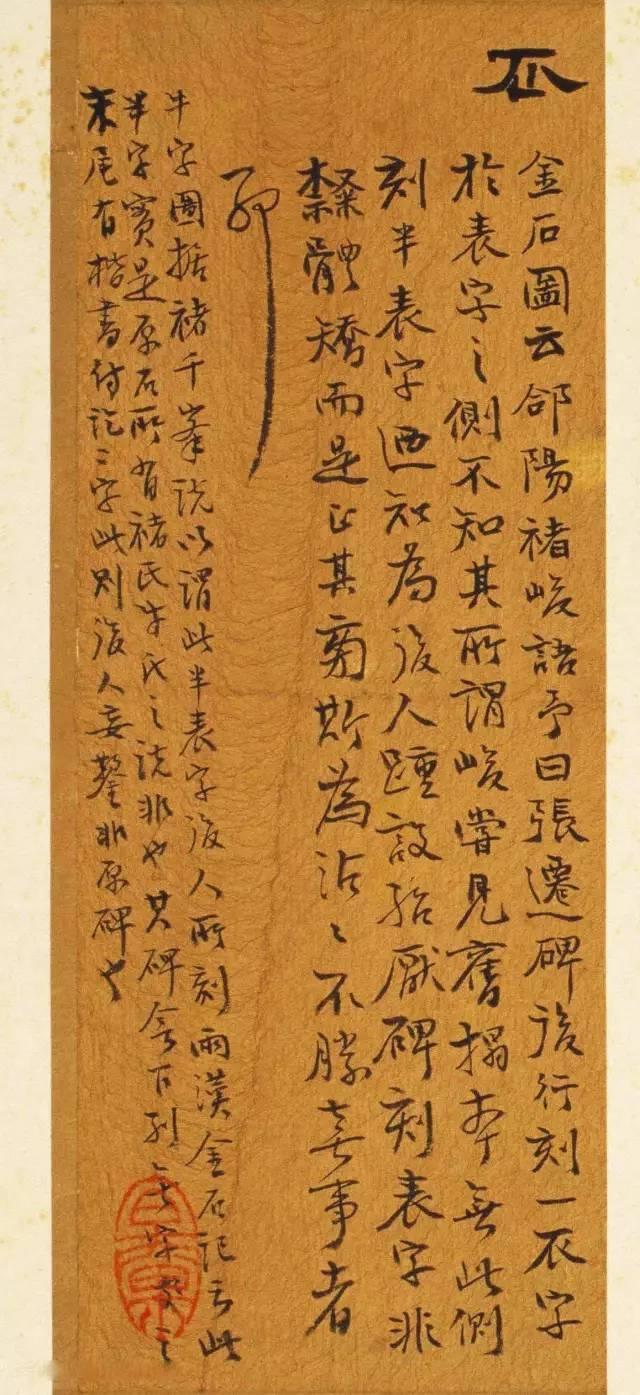 金石圖云郃陽褚峻語予曰張遷碑後行刻一衣字
於表字之側不知其所謂峻嘗見舊搨本無此側
刻半表字迺知為後人踵設殆厭碑刻表字非
隸體矯而是正其旁斯為沾〻不勝喜事者
耶
牛字圖據褚千峯說以謂此半表字後人所刻兩漢金石記云此
半字實是原石所有褚氏牛氏之說非也其碑
末尾有楷書付訖二字此則後人妄鑿非原碑也